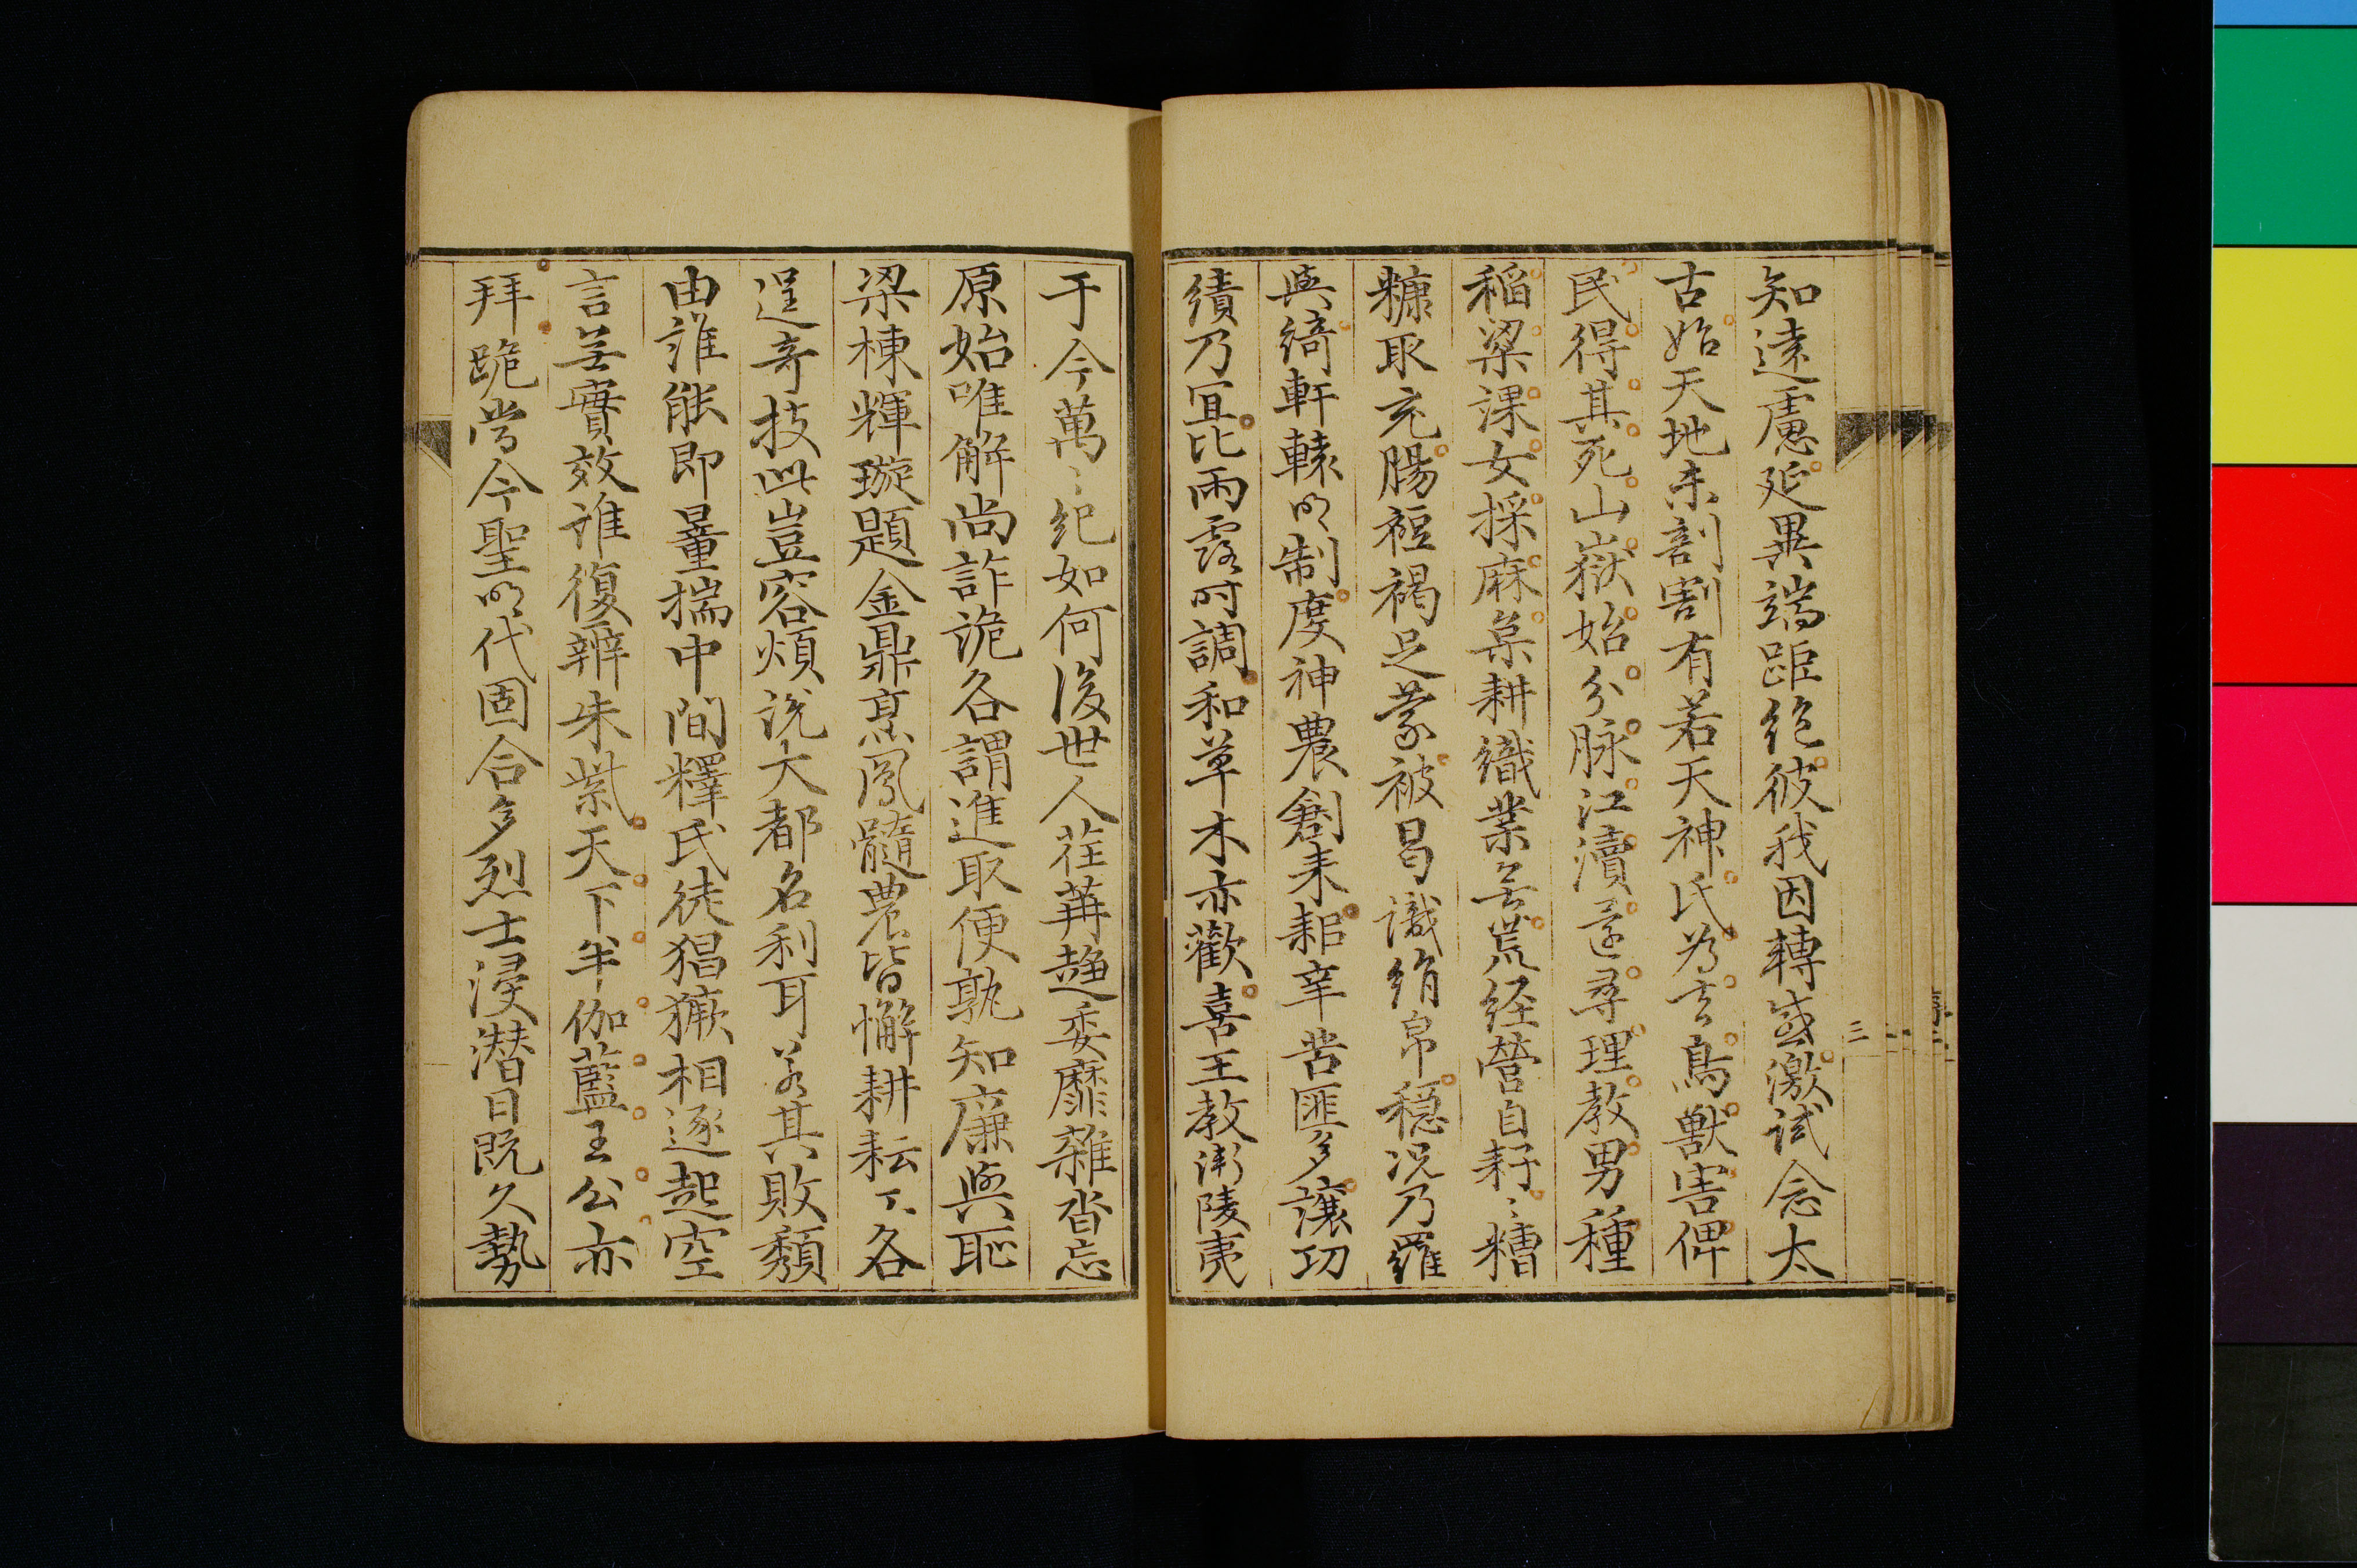 知遠慮延異端距絶彼我因轉感激試念太
古始天地未割割有若天神氏為去鳥獸害俾
民得其死山嶽始分脉江瀆還尋理教男種
稲粱課女採麻枲耕織業無荒経營自耔〻糟
糠取充腸裋褐足蒙被曷識絹帛穏况乃羅
與綺軒轅明制度神農創耒耜辛苦匪多讓功
績乃冝比雨露時調和草木亦歡喜王教漸陵夷
三
于今萬〻紀如何後世人荏苒趨委靡雜沓忘
原始唯解尚詐詭各謂進取便孰知廉與耻
梁棟輝璇題金鼎烹鳳髓農皆懈耕耘工各
逞奇技此豈容煩説大都名利耳若其敗頽
由誰能即量揣中間釋氏徒猖獗相逐起空
言無實效誰復辨朱紫天下半伽藍王公亦
拜跪當今聖明代固合多烈士浸潜日既久勢